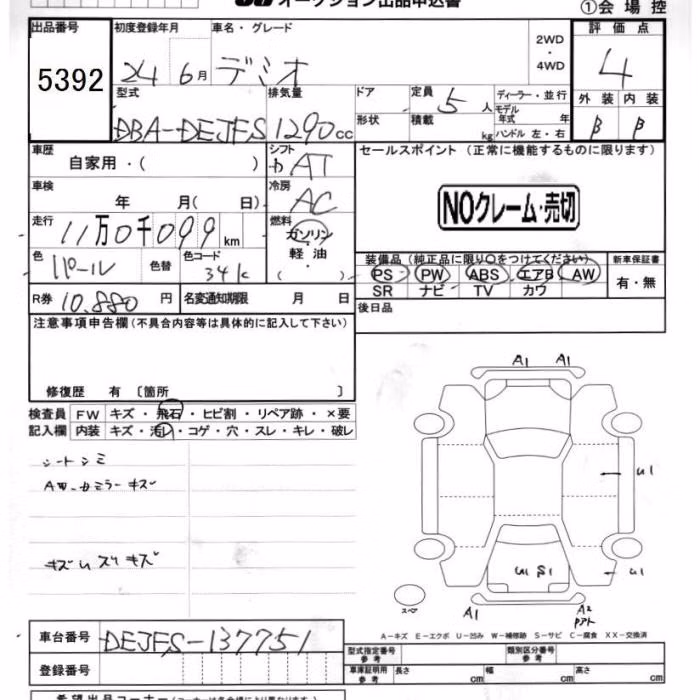 オークション出品申込書 ①会場控
出品番号 初度登録年月 車名・グレード 2WD・4WD 評価点
5392 24 6月 デミオ 4
型式 排気量 ドア 定員 5人 ディーラー・並行 外装 内装
DBA-DEJFS 1290cc 形状 積載 kg モデル年式 年 ハンドル 左・右 B B
車歴 自家用・( ) シフト AT セールスポイント (正常に機能するものに限ります)
車検 年 月( 日) 冷房 AC NOクレーム・売切
走行 11万0千099km 燃料 ガソリン 軽油 ( )
色 パール 色替 色コード 34K 装備品 (純正品に限り○をつけてください) 新車保証書
PS PW ABS エアB AW 有・無
SR ナビ TV カワ
R券 10,880円 名変通知期限 月 日 後日品
注意事項申告欄(不具合内容等は具体的に記入して下さい)
修復歴 有 〔箇所 〕
A1 A1
検査員 FW キズ・飛石・ヒビ割・リペア跡・×要
記入欄 内装 キズ・汚レ・コゲ・穴・スレ・キレ・破レ
シートシミ
AW・カミラーキズ
U1
キズUスリキズ
U1 S1 U1
スペア
A1 A2
A-キズ E-エクボ U-凹み W-補修跡 S-サビ C-腐食 XX-交換済
車台番号 DEJFS-137751
型式指定番号 参考 類別区分番号 参考
登録番号 車庫証明用 参考 長さ cm 幅 cm 高さ cm
希望出品コーナー